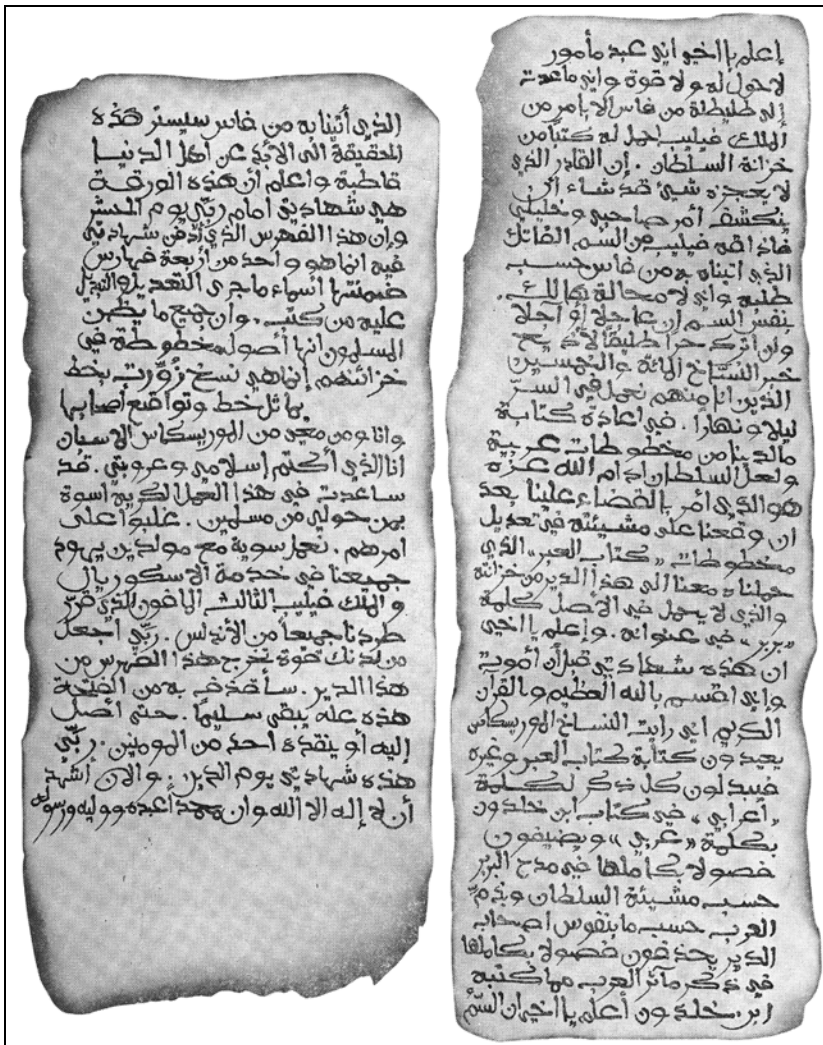 إعلم يا اخي اني عبد مأمور
لا حول له ولا قوة واني ما عدت
إلى طليطلة من فاس الا بامر من
الملك فيليب احمل له كتباً من
خزانة السلطان . إن القادر الذي
لا يعجزه شيئ قد شاء أن
ينكشف أمر صاحبي وخليلي
فاذاقه فيليب من السم الفاتك
الذي اتيناه به من فاس حسب
طلبه واني لا محالة هالك .
بنفس السم إن عاجلا أو آجلا
وان اترك حراً طليقاً لأذيع
خبر النساخ المائة والخمسين
الذين انا منهم نعمل في السرّ
ليلا ونهاراً . في اعادة كتابة
ما لدينا من مخطوطات عربية
ولعل السلطان ادام الله عزه
هو الذي أمر بالقضاء علينا بعد
ان وقعنا على مشيئته في تعديل
مخطوطات «كتاب العبر» الذي
حملناه معنا الى هذا الدير من خزانته
والذي لا يحمل في الأصل كلمة
«بربر» في عنوانه . وإعلم يا اخي
ان هذه شهادتي قبل أن أموت
واني اقسم بالله العظيم وبالقرآن
الكريم اني رايت النساخ الموريسكاس
يعيدون كتابة كتاب العبر وغيره
فيبدلون كل ذكر لكلمة
«أعرابي» في كتاب ابن خلدون
بكلمة «عربي» ويضيفون
فصولا بكاملها في مدح البربر
حسب مشيئة السلطان وبذمّ
العرب حسب ما بنفوس اصحاب
الدير يحذفون فصولا بكاملها
في ذكر مآثر العرب مما كتبه
ابن خلدون أعلم يا اخي ان السّمّ
الذي أتينا به من فاس سيستر هذه
الحقيقة الى الأبد عن اهل الدنيا
قاطبة واعلم أن هذه الورقة
هي شهادتي امام ربّي يوم المحشر
وإن هذا الفهرس الذي أدفن شهادتي
فيه انما هو واحد من أربعة فهارس
ضمنتها أسماء ما جرى التعديل والتبديل
عليه من كتب . وان جميع ما يظن
المسلمون انها أصوله مخطوطة في
خزائنهم إنما هي نسخ زُوّرت بخط
يماثل خط وتواقيع أصحابها
وانا ومن معي من الموريسكاس الاسبان
انا الذي أكتم إسلامي وعروبتي . قد
ساعدت في هذا العمل الكريه اسوة
بمن حولي من مسلمين . غلبوا على
امرهم . نعمل سوية مع مولدين يهود
جميعنا في خدمة الاسكوريال
والملك فيليب الثالث المافون الذي قرّر
طردنا جميعاً من الأندلس . ربّي اجعل
من لدنك قوة تخرج هذا الفهرس من
هذا الدير . ساقذف به من الفتحة
هذه عله يبقى سليماً . حتى أصل
إليه أو ينقذه احد من المومنين . ربّي
هذه شهادتي يوم الدين . والان أشهد
أن لا إله الا الله وان محمد أعبده ووليه ورسوله